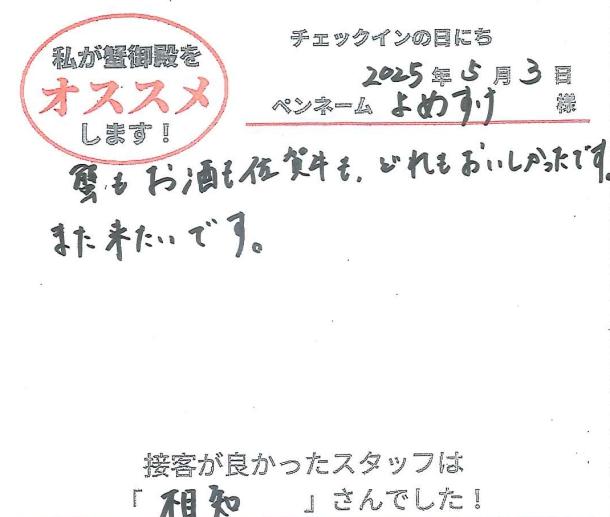 私が蟹御殿を
オススメ
します！
チェックインの日にち
2025年5月3日
ペンネーム よめすけ 様
蟹もお酒も佐賀牛も、どれもおいしかったです。
また来たいです。
接客が良かったスタッフは
「 相知 」さんでした！